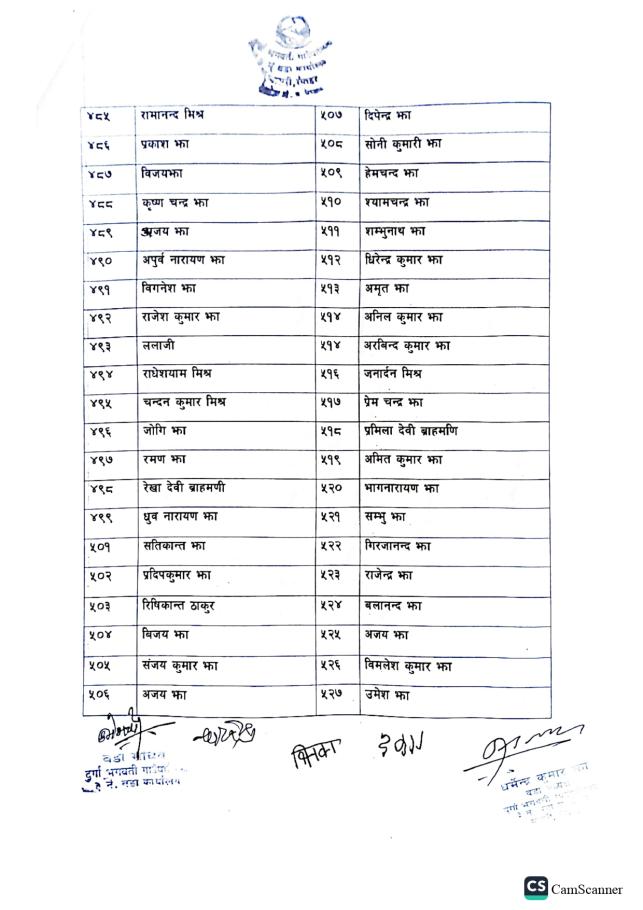 ४८५ रामानन्द मिश्र ५०७ दिपेन्द्र झा
४८६ प्रकाश झा ५०८ सोनी कुमारी झा
४८७ विजयझा ५०९ हेमचन्द झा
४८८ कृष्ण चन्द्र झा ५१० श्यामचन्द्र झा
४८९ अजय झा ५११ शम्भुनाथ झा
४९० अपुर्व नारायण झा ५१२ धिरेन्द्र कुमार झा
४९१ विगनेश झा ५१३ अमृत झा
४९२ राजेश कुमार झा ५१४ अनिल कुमार झा
४९३ ललाजी ५१४ अरबिन्द कुमार झा
४९४ राधेशयाम मिश्र ५१६ जनार्दन मिश्र
४९५ चन्दन कुमार मिश्र ५१७ प्रेम चन्द्र झा
४९६ जोगि झा ५१८ प्रमिला देवी ब्राहमणि
४९७ रमण झा ५१९ अमित कुमार झा
४९८ रेखा देवी ब्राहमणी ५२० भागनारायण झा
४९९ धुव नारायण झा ५२१ सम्भु झा
५०१ सतिकान्त झा ५२२ गिरजानन्द झा
५०२ प्रदिपकुमार झा ५२३ राजेन्द्र झा
५०३ रिषिकान्त ठाकुर ५२४ बलानन्द झा
५०४ बिजय झा ५२५ अजय झा
५०५ संजय कुमार झा ५२६ विमलेश कुमार झा
५०६ अजय झा ५२७ उमेश झा
दुर्गा भगवती
नं. वडा कार्यालय
धर्मेन्द्र कुमार
CS CamScanner